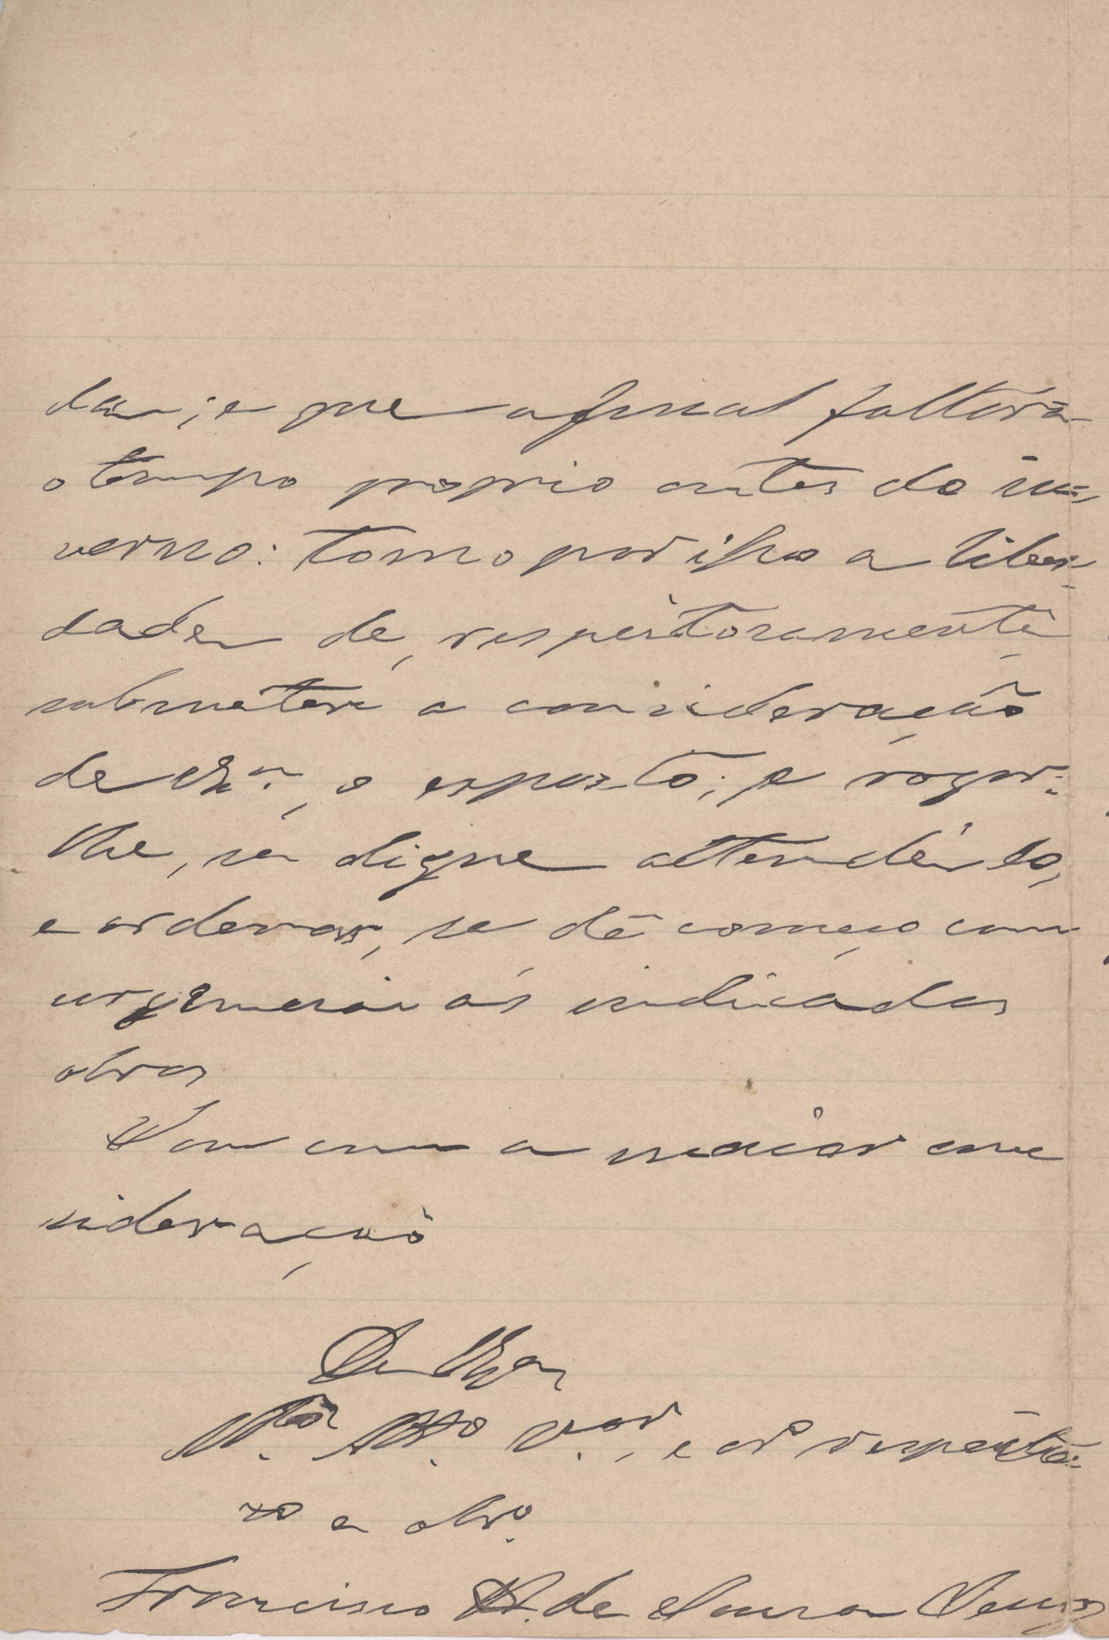 das; e que afinal faltará
o tempo proprio antes do in-
verno: tomo por isso a liber-
dade de, respeitosamente,
submeter a consideração
de V. Exª., o exposto; e rogar-
lhe, se digne attendêl-o,
e ordenar, se dê começo com
urgencia ás indicadas
obras
Sou com a maior con
sideração
De V. Exª
Mtº. Attº. V.or, e cº respeito-
so e obrº.
Francisco de Souza